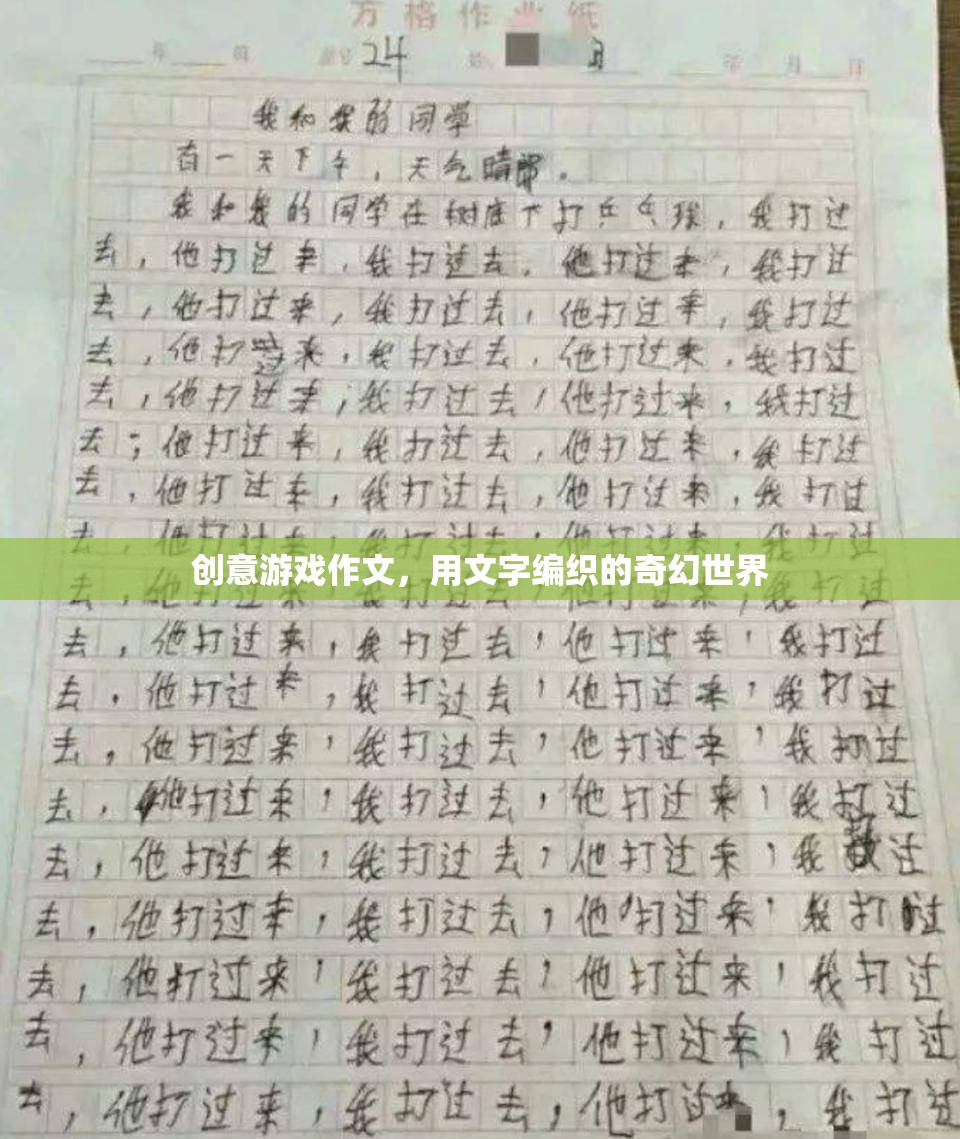 方格作业纸
年 月 24 月 日
我和我的同学
有一天下午，天气晴朗。
我和我的同学在树底下打乒乓球，我打过
去，他打过来，我打过去，他打过来，我打过
去，他打过来，我打过去，他打过来，我打过
去，他打过来，我打过去，他打过来，我打过
去，他打过来；我打过去，他打过来，我打过
去；他打过来，我打过去，他打过来，我打过
去，他打过来，我打过去，他打过来，我打过
去，他打过来，我打过去，他打过来，我打过
创意游戏作文，用文字编织的奇幻世界
去，他打过来，我打过去，他打过来，我打过
去，他打过来，我打过去，他打过来，我打过
去，他打过来，我打过去，他打过来，我打过
去，他打过来，我打过去，他打过来，我打过
去，他打过来，我打过去，他打过来，我打过
去，他打过来，我打过去，他打过来，我过
去，他打过来，我打过去，他打过来，我打过
去，他打过来，我打过去，他打过来，我打过
去，他打过来，我打过去，他打过来，我打过
去，他打过来，我打过去，他打过来，我打过